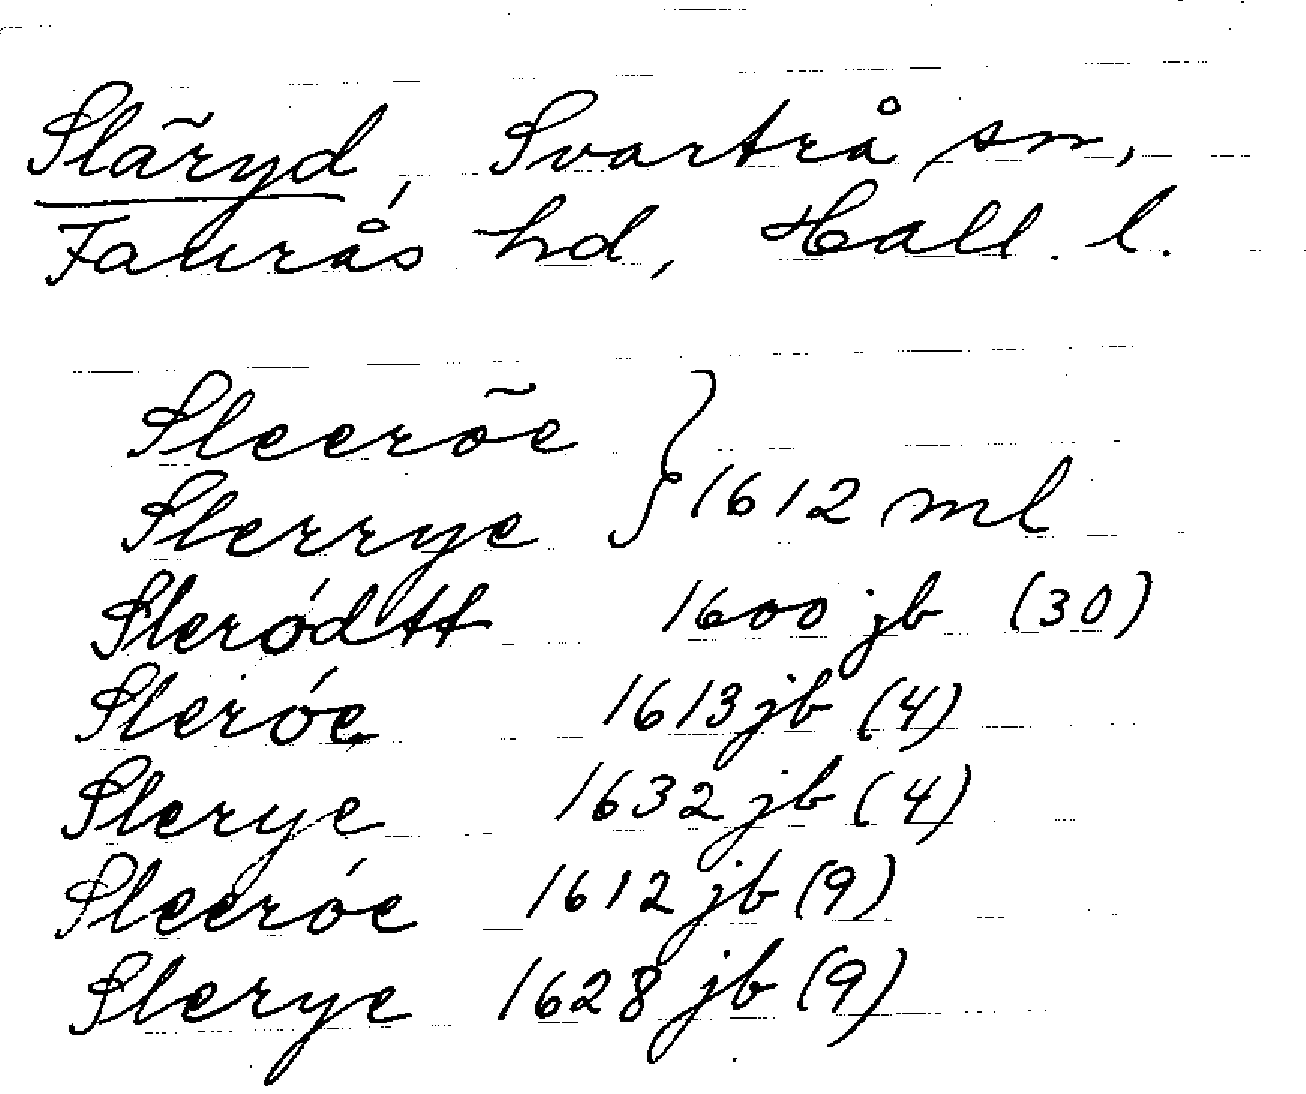 Släryd, Svartrå sn,
Faurås hd, Hall. l.
Sleeröe } 1612 ml
Slerrye
Sleródtt 1600 jb (30)
Sleróe 1613 jb (4)
Slerye 1632 jb (4)
Sleeróe 1612 jb (9)
Slerye 1628 jb (9)